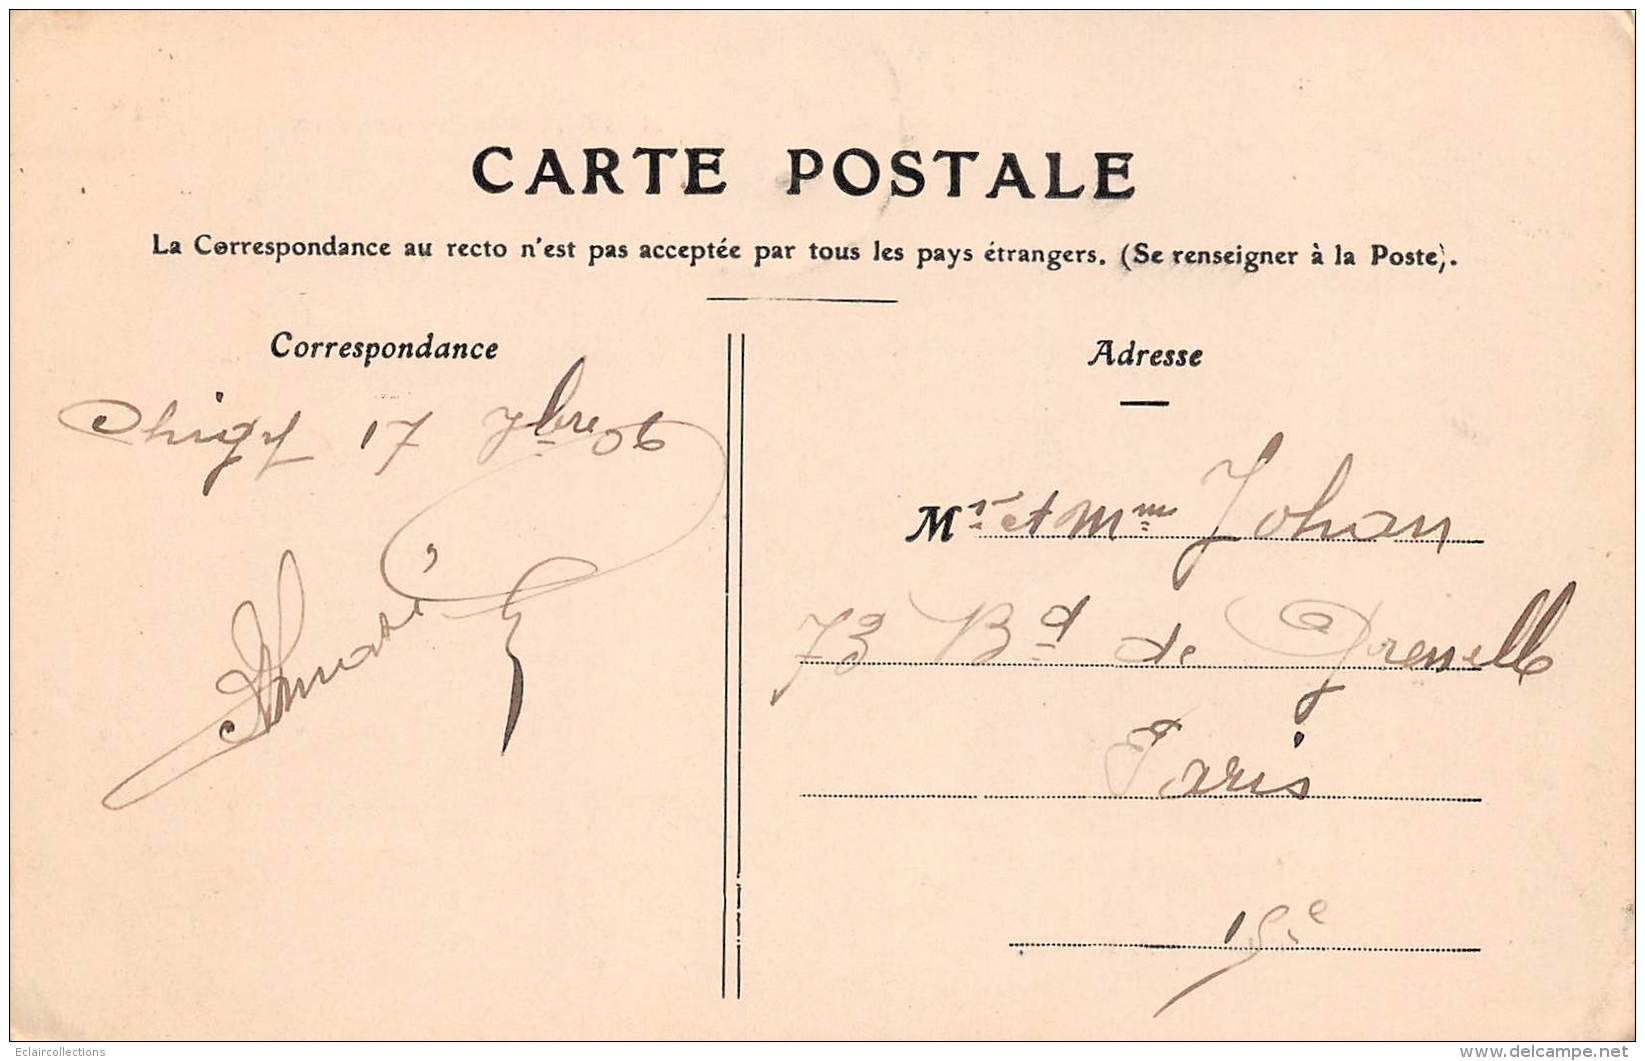 CARTE POSTALE
La Correspondance au recto n'est pas acceptée par tous les pays étrangers. (Se renseigner à la Poste).
Correspondance
Chigy 17 7bre 06
Adresse
Mr et Mme Johan
73 Bd de Grenelle
Paris
15e
Eclaircollections
delcampe.net